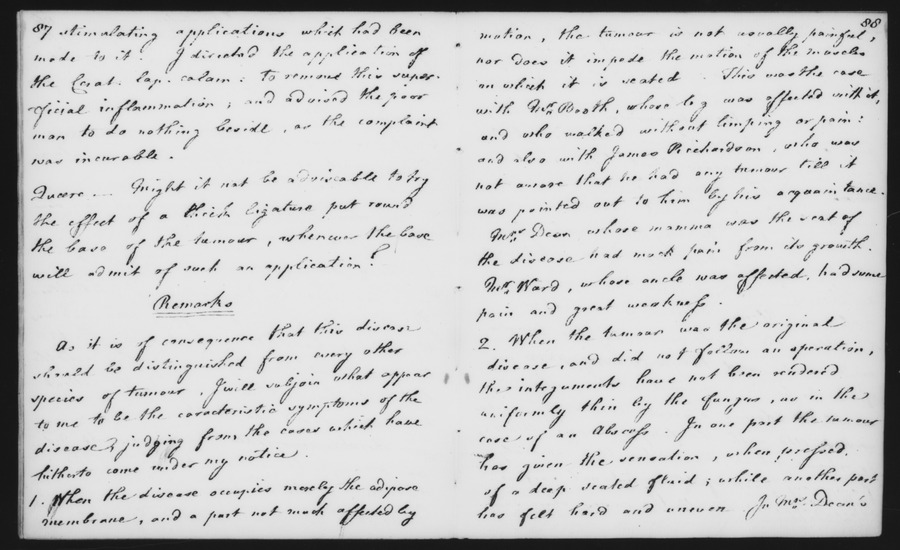 87 stimulating applications which had been
made to it. I directed the application of
the Cerat. lap. calam: to remove this super-
ficial inflammation; and advised the poor
man to do nothing beside, as the complaint
was incurable.
Quere — Might it not be adviseable to try
the effect of a thick ligature put round
the base of the tumour, whenever the base
will admit of such an application?
Remarks
As it is of consequence that this disease
should be distinguished from every other
species of tumour, I will subjoin what appear
to me to be the caracteristic symptoms of the
disease, judging from the cases which have
hitherto come under my notice.
1. When the disease occupies merely the adipose
membrane, and a part not much affected by
88
motion, the tumour is not usually painful,
nor does it impede the motion of the muscles
on which it is seated. This was the case
with Mrs Booth, whose leg was affected with it,
and who walked without limping or pain:
and also with James Richardson, who was
not aware that he had any tumour till it
was pointed out to him by his acquaintance.
Mrs Dean whose mamma was the seat of
the disease had much pain from its growth.
Mrs Ward, whose ancle was affected, had some
pain and great weakness.
2. When the tumour was the original
disease, and did not follow an operation,
the integuments have not been rendered
uniformly thin by the fungus, as in the
case of an Abscess. In one part the tumour
has given the sensation, when pressed,
of a deep seated fluid; while another part
has felt hard and uneven. In Mrs Dean's